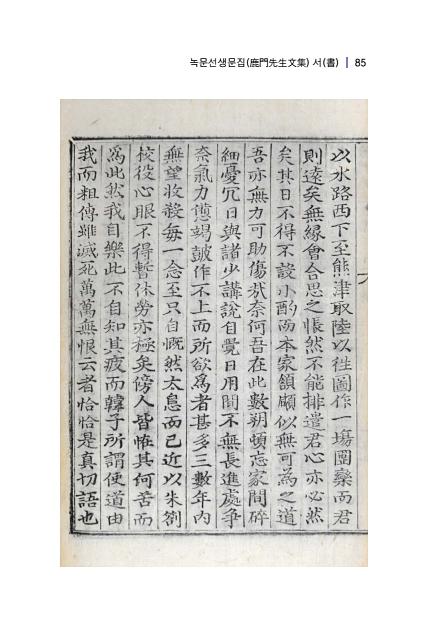 녹문선생문집(鹿門先生文集) 서(書) | 85
以水路西下至熊津取陸以往圖作一場團欒而君
則遠矣無緣會合思之悵然不能排遣君心亦必然
矣其日不得不設小酌而本家頷顑似無可為之道
吾亦無力可助傷哉奈何吾在此數朔頓忘家間碎
細憂冗日與諸少講說自覺日用間不無長進處爭
奈氣力憊竭皷作不上而所欲為者甚多三數年內
無望收殺每一念至只自慨然太息而已近以朱劄
校役心眼不得暫休勞亦極矣傍人皆恠其何苦而
為此然我自樂此不自知其疲而韓子所謂使道由
我而粗傳雖滅死萬萬無恨云者恰恰是真切語也